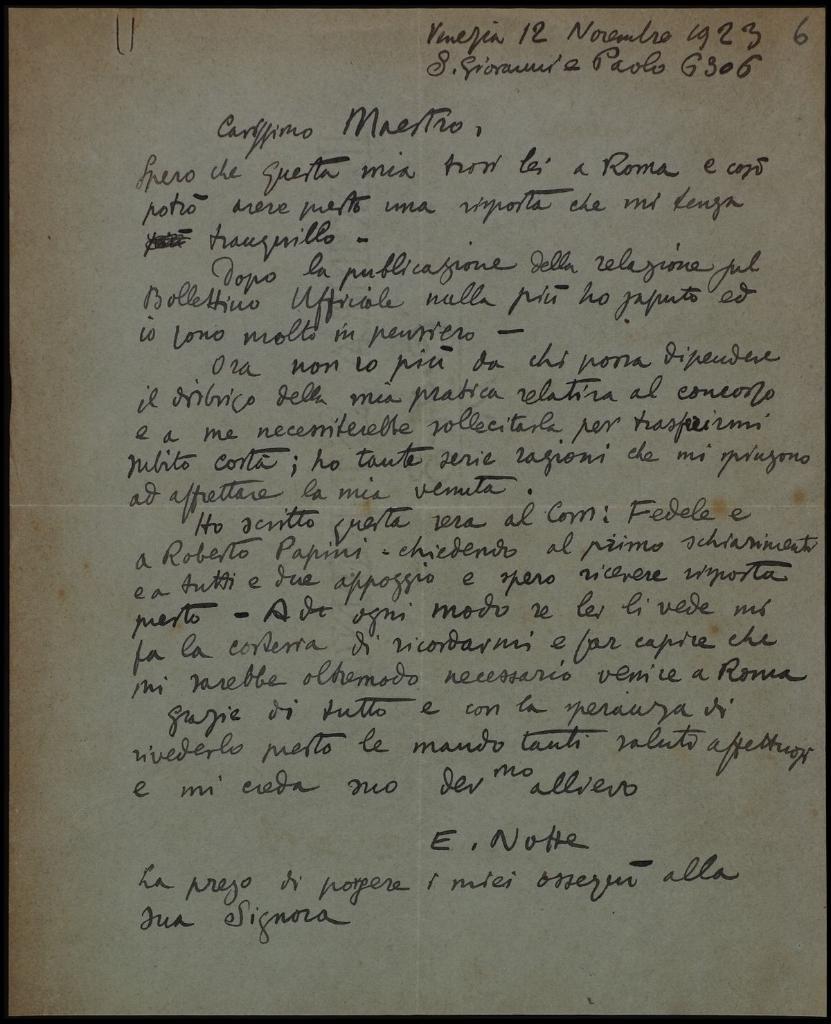 Venezia 12 Novembre 1923 6
S. Giovanni e Paolo 6306
Carissimo Maestro,
Spero che questa mia trovi lei a Roma e così
potrò avere presto una risposta che mi tenga
tranquillo -
Dopo la pubblicazione della relazione sul
Bollettino Ufficiale nulla più ho saputo ed
io sono molto in pensiero -
Ora non so più da chi possa dipendere
il disbrigo della mia pratica relativa al concorso
e a me necessiterebbe sollecitarla per trasferirmi
subito costà; ho tante serie ragioni che mi spingono
ad affrettare la mia venuta.
Ho scritto questa sera al Com: Fedele e
a Roberto Papini - chiedendo al primo schiarimenti
e a tutti e due appoggio e spero ricevere risposta
presto - Ad ogni modo se lei li vede mi
fa la cortesia di ricordarmi e far capire che
mi sarebbe oltremodo necessario venire a Roma
Grazie di tutto e con la speranza di
rivederlo presto le mando tanti saluti affettuosi
e mi creda suo dev mo allievo
E. Notte
La prego di porgere i miei ossequi alla
sua Signora